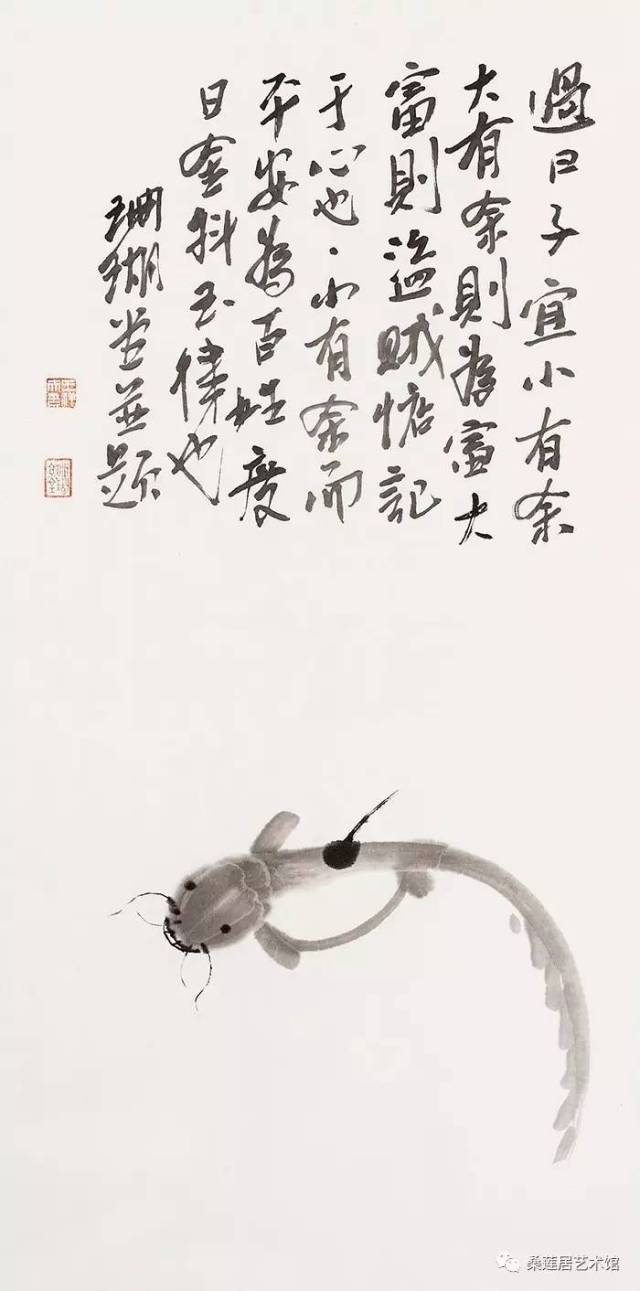 過日子宜小有余
大有余則為富大
富則盜賊惦記
于心也、小有余而
平安為百姓度
日金科玉律也
珊瑚堂並題
桑莲居艺术馆